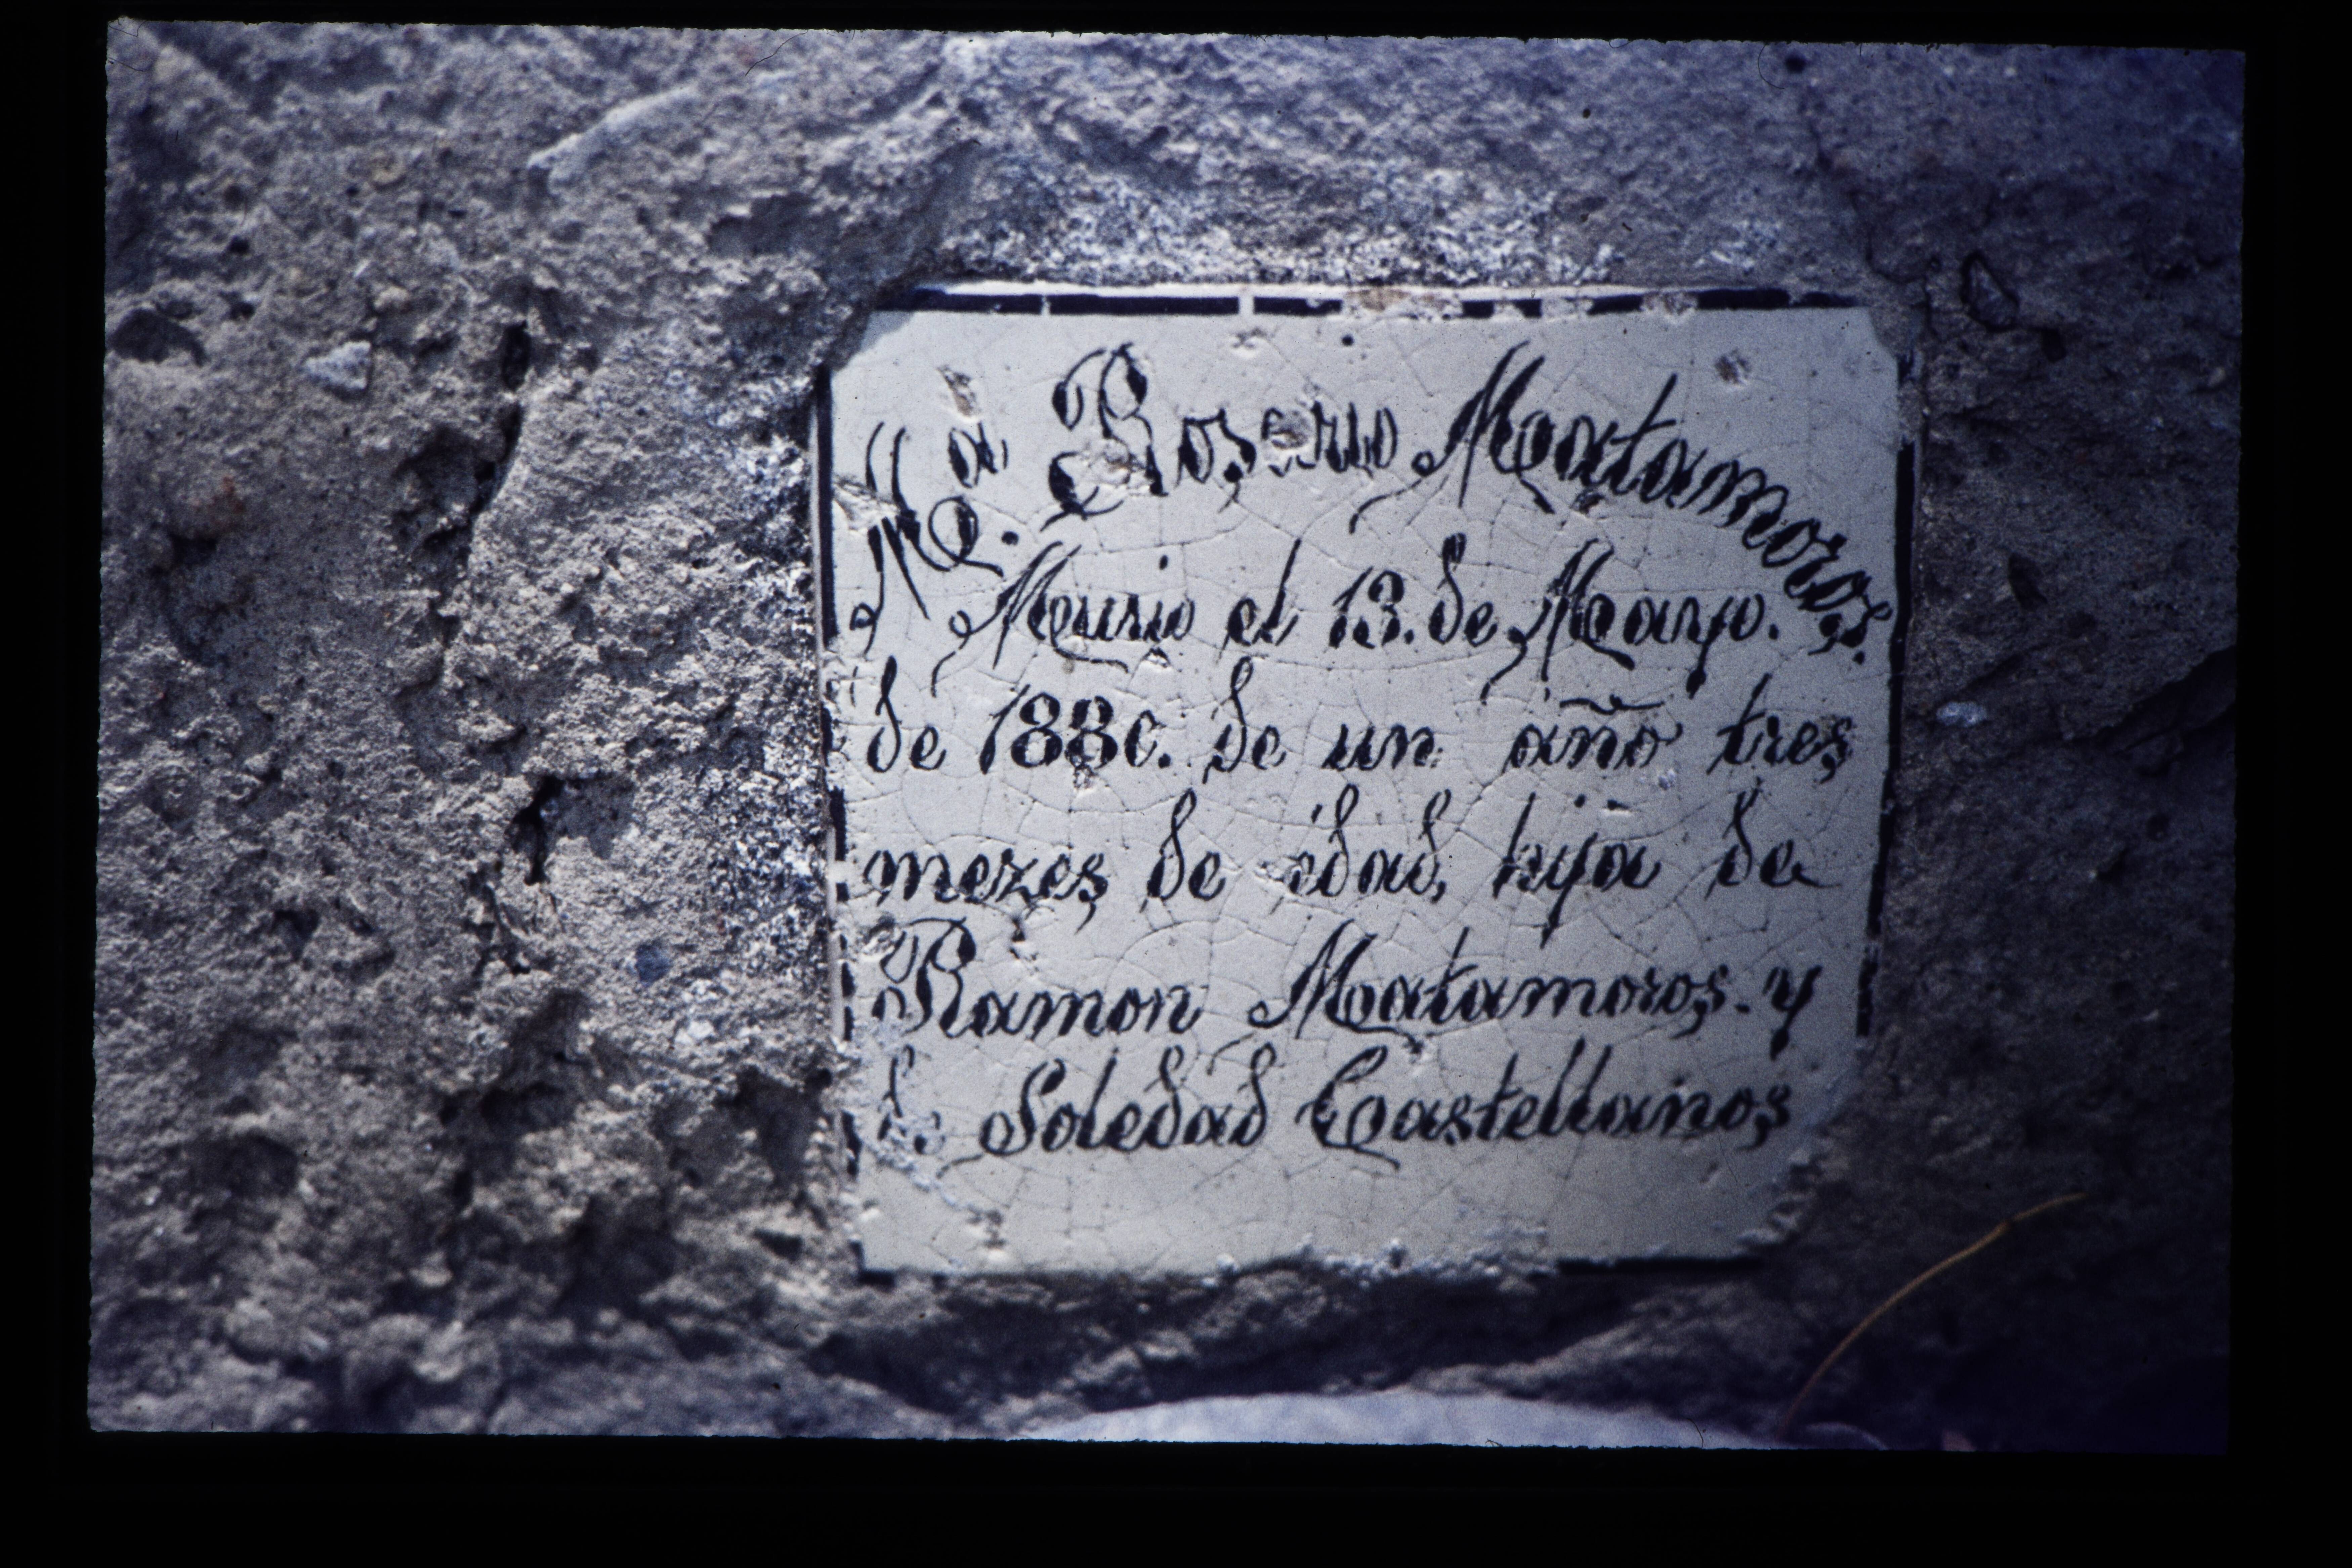 Ma. Rosario Matamoros.
Murio el 13. de Marzo.
de 1880. de un año tres
mezes de edad, hija de
Ramon Matamoros. y
de Soledad Castellanos